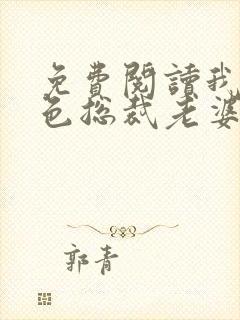 免費閱讀我
色总裁老婆
郭青